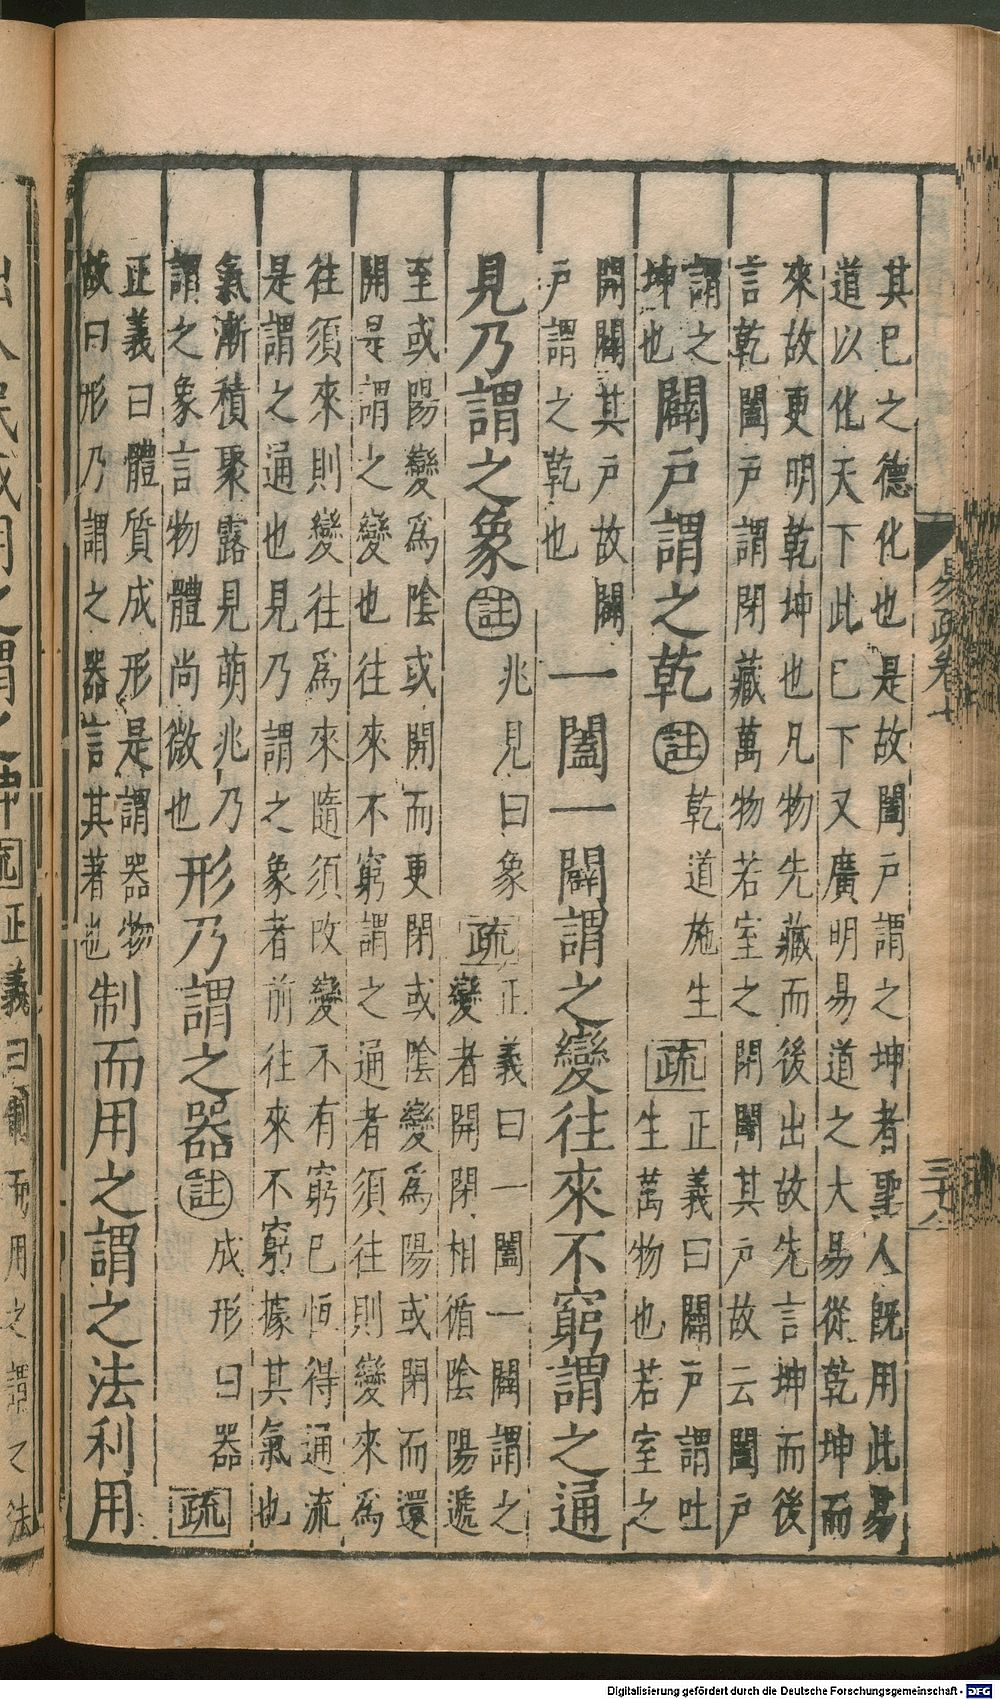 其巳之德化也是故闔戶謂之坤者聖人既用此易
道以化天下此巳下又廣明易道之大易從乾坤而
來故更明乾坤也凡物先藏而後出故先言坤而後
言乾闔戶謂閉藏萬物若室之閉闔其戶故云闔戶
謂之
坤也
闢戶謂之乾
註
乾道施生
疏
正義曰闢戶謂吐
生萬物也若室之
開闢其戶故闢
戶謂之乾也
一闔一闢謂之變往來不窮謂之通
見乃謂之象
註
兆見曰象
疏
正義曰一闔一闢謂之
變者開閉相循陰陽遞
至或陽變爲陰或開而更閉或陰變爲陽或閉而還
開是謂之變也往來不窮謂之通者須往則變來爲
往須來則變往爲來隨須改變不有窮巳恒得通流
是謂之通也見乃謂之象者前往來不窮據其氣也
氣漸積聚露見萌兆乃
謂之象言物體尚微也
形乃謂之器
註
成形曰器
疏
正義曰體質成形是謂器物
故曰形乃謂之器言其著也
制而用之謂之法利用
出入民咸用之謂之神
疏
正義曰制而用之謂之法
易疏卷十
Digitalisierung gefördert durch die Deutsche Forschungsgemeinschaft - DFG